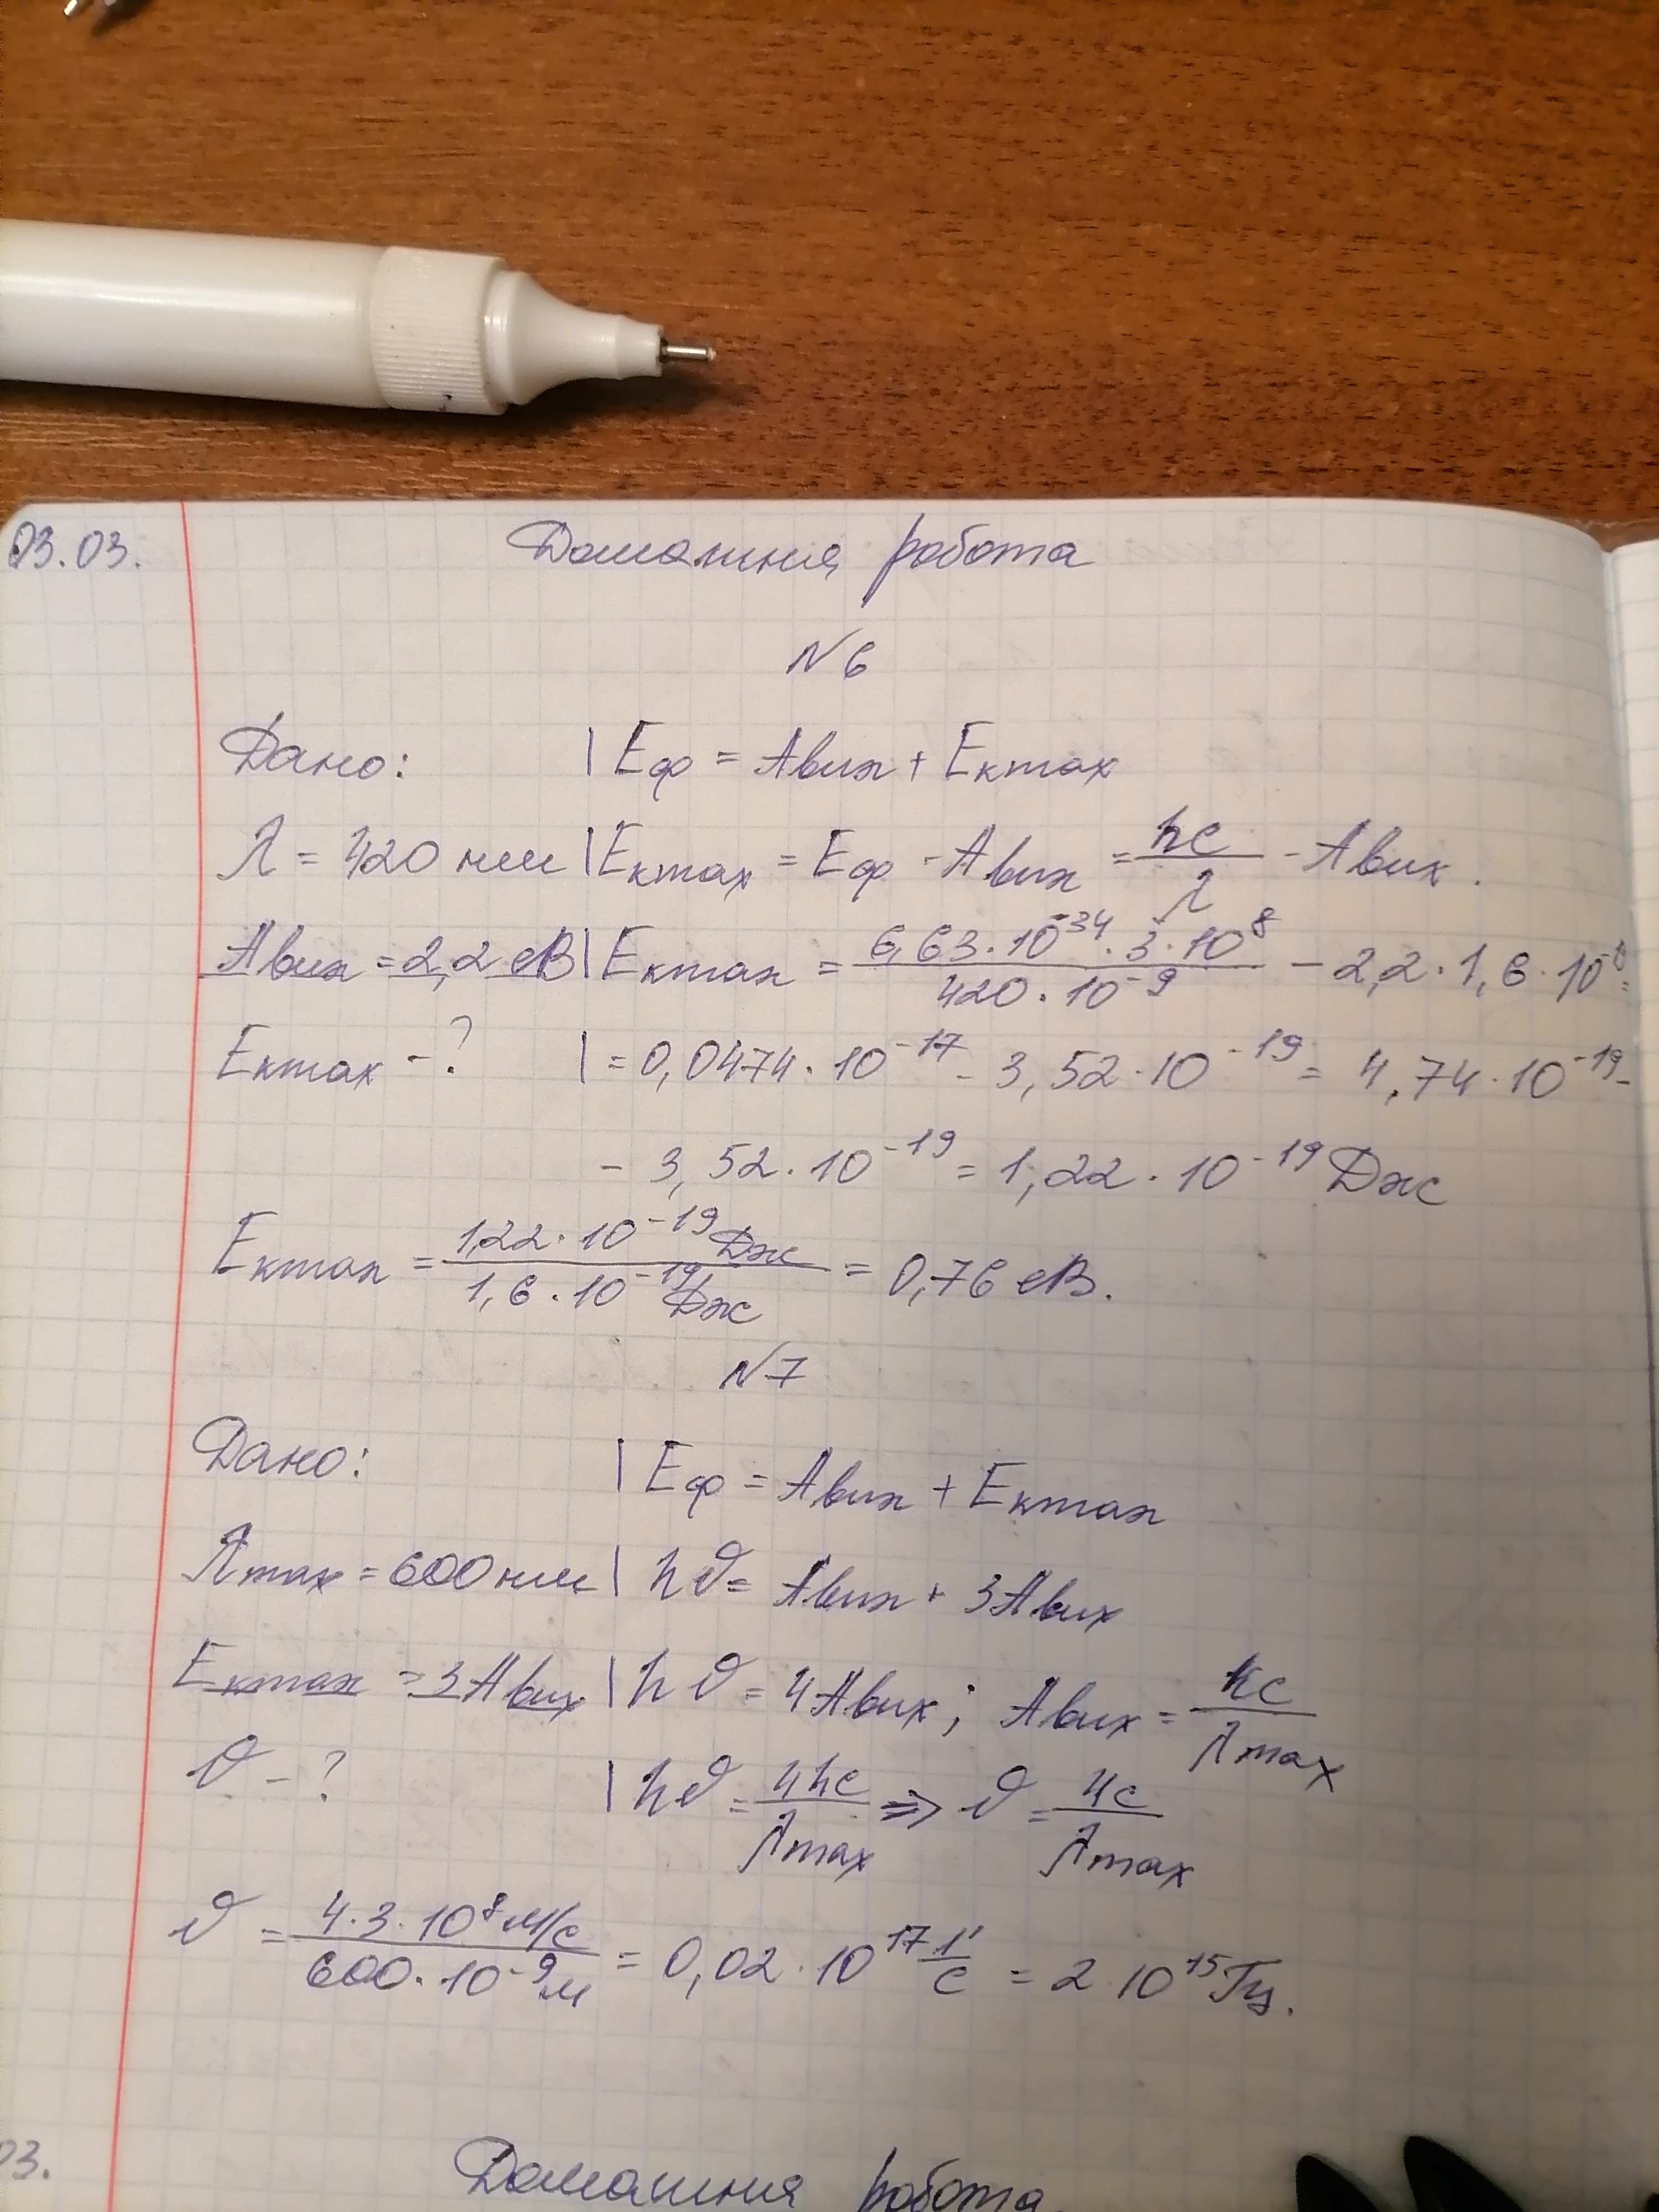 03.03.
Домашня робота
№6
Дано: | Eф = Aвих + Eкmax
λ = 420 нм | Eкmax = Eф - Aвих = hc/λ - Aвих.
Aвих = 2,2 еВ | Eкmax = 6,63·10^-34·3·10^8/420·10^-9 - 2,2·1,6·10
Eкmax - ? | = 0,0474·10^-17 - 3,52·10^-19 = 4,74·10^-19 -
- 3,52·10^-19 = 1,22·10^-19 Дж
Eкmax = 1,22·10^-19 Дж/1,6·10^-19 Дж = 0,76 еВ.
№7
Дано: | Eф = Aвих + Eкmax
λmax = 600 нм | hν = Aвих + 3Aвих
Eкmax = 3Aвих | hν = 4Aвих; Aвих = hc/λmax
ν - ? | hν = 4hc/λmax => ν = 4c/λmax
ν = 4·3·10^8 м/с/600·10^-9 м = 0,02·10^17 1/с = 2·10^15 Гц.
03.
Домашня робота